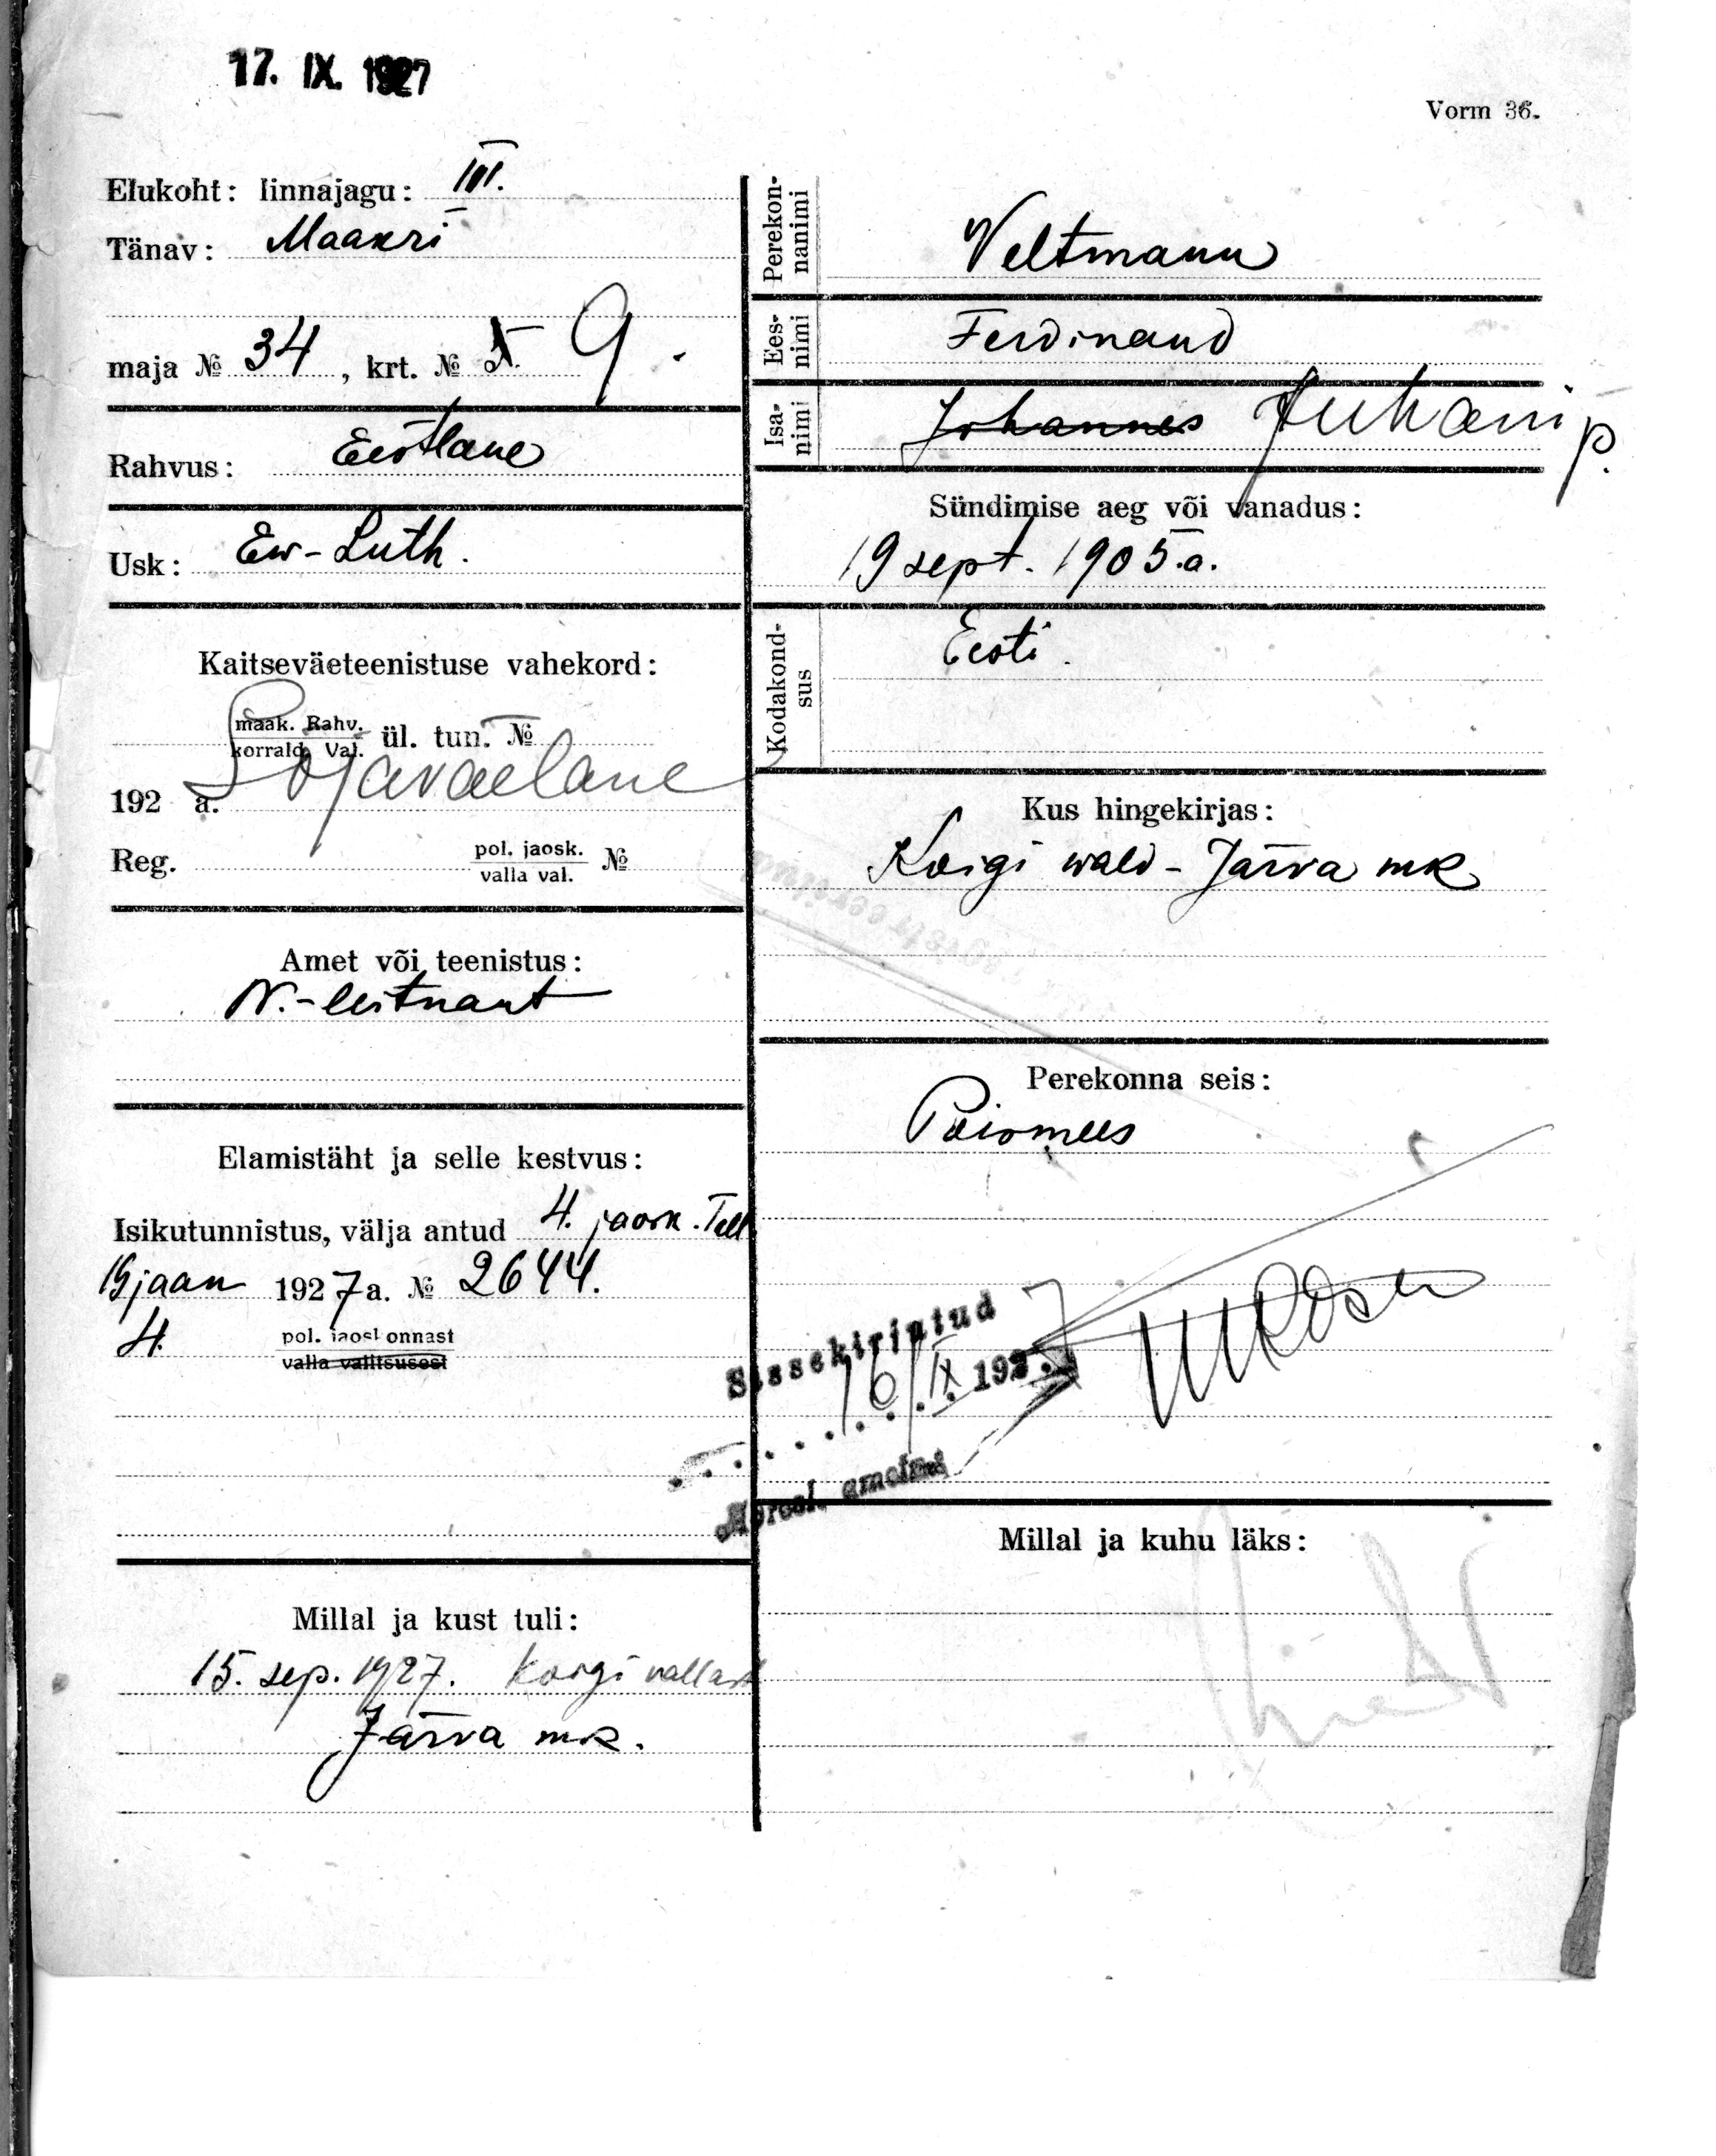 17. IX. 1927
Vorm 36.
Elukoht: linnajagu: III.
Tänav: Maakri
maja № 34, krt. № 9.
Rahvus: Eestlane
Usk: Ew-Luth.
Kaitseväeteenistuse vahekord:
maak. Rahv.
korrald. Val. ül. tun. №
Sõjaväelane
192 a.
Reg. pol. jaosk. №
valla val.
Amet või teenistus:
N.-leitnant
Elamistäht ja selle kestvus:
Isikutunnistus, välja antud 4. jaosk. Tall
19 jaan 1927 a. № 2644.
4. pol. jaoskonnast
valla valitsusest
Millal ja kust tuli:
15. sep. 1927. Koigi vallast
Järva mk.
Perekon-
nanimi
Veltmann
Ees-
nimi
Ferdinand
Isa-
nimi
Johannes Juhani p.
Sündimise aeg või vanadus:
19 sept. 1905.a.
Kodakond-
sus
Eesti.
Kus hingekirjas:
Koigi wald - Järva mk
Perekonna seis:
Poismees
Sissekirjutud
16/IX. 1927
Millal ja kuhu läks: